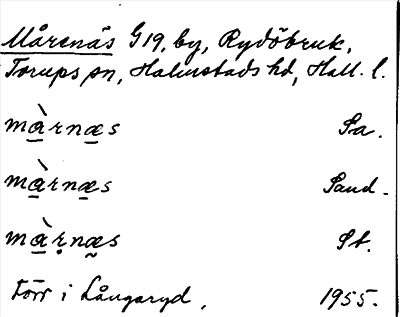 Mårenäs G19, by, Rydöbruk,
Torups sn, Halmstads hd, Hall. l.
màrnæs Sa.
màrnæs Sand.
màrnæs St.
Förr i Långaryd, 1955.